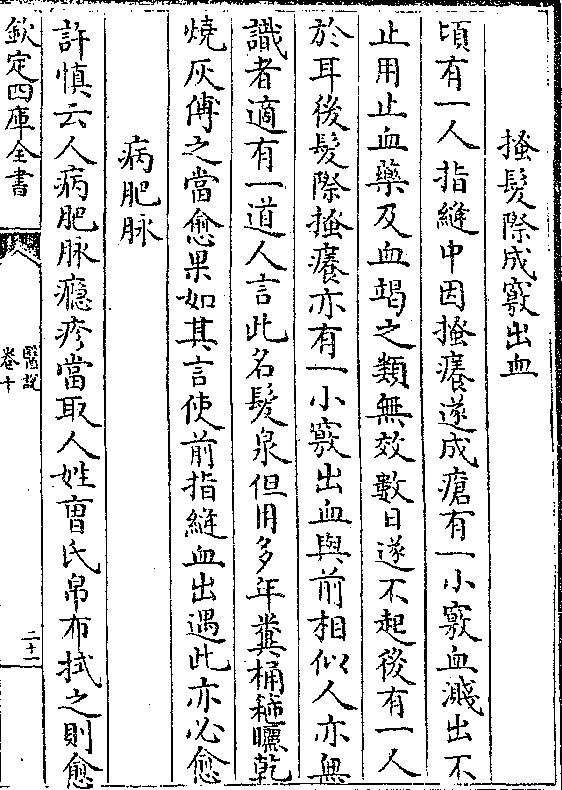 搔髮際成竅出血
頃有一人指縫中因搔癢遂成瘡有一小竅血濺出不
止用止血藥及血竭之類無效數日遂不起後有一人
於耳後髮際搔癢亦有一小竅出血與前相似人亦無
識者適有一道人言此名髮泉但用多年糞桶箍曬乾
燒灰傅之當愈果如其言使前指縫血出遇此亦必愈
病肥脉
許慎云人病肥脉癮疹當取人姓曺氏帛布拭之則愈
欽定四庫全書
醫説
卷十
二十一